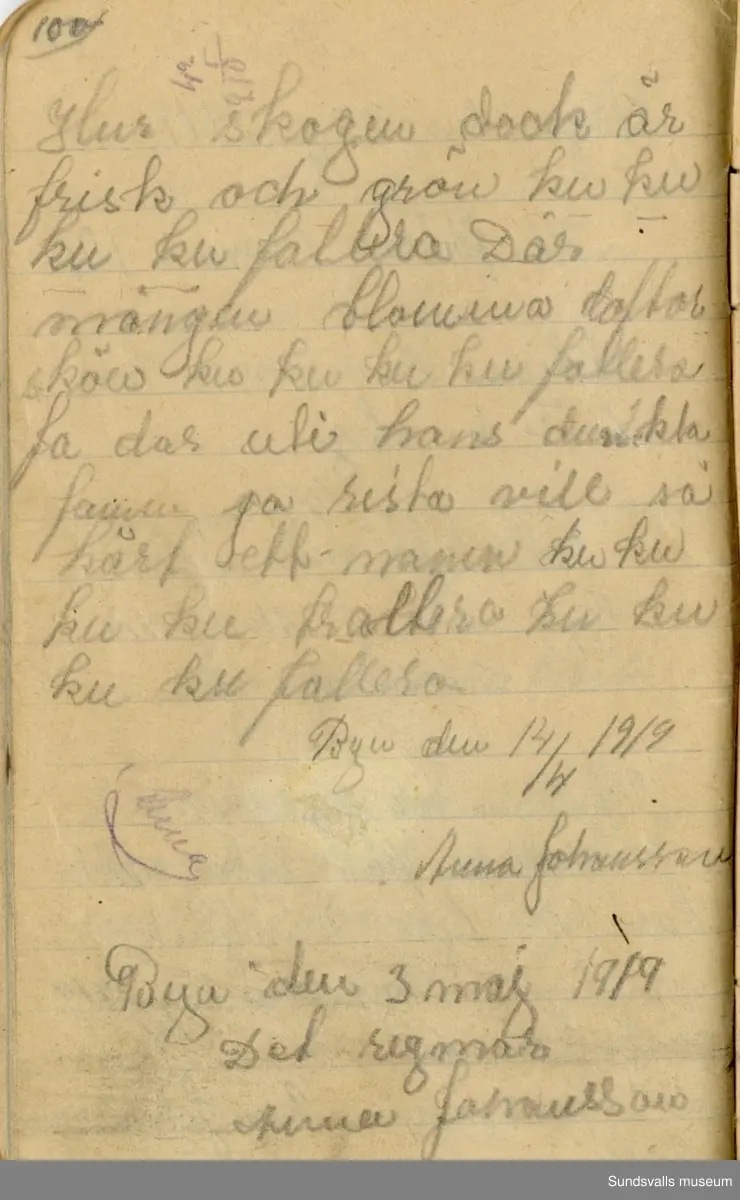 100
42
215
Hur skogen dock är
frisk och grön ku ku
ku ku fallera Där
mången blomma doftar
skön ku ku ku ku fallera
ja där uti hans dunkla
famn ja rista vill så
kärt ett namn ku ku
ku ku trallera ku ku
ku ku fallera
Byn den 14/4 1919
Anna
Anna Johansson
Bya den 3 maj 1919
Det regnar
Anna Johansson
Sundsvalls museum